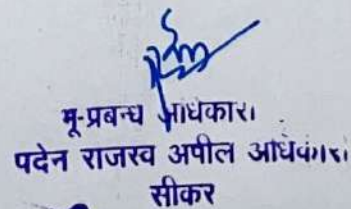 भू-प्रबन्ध अधिकारी
पदेन राजस्व अपील अधिकारी
सीकर